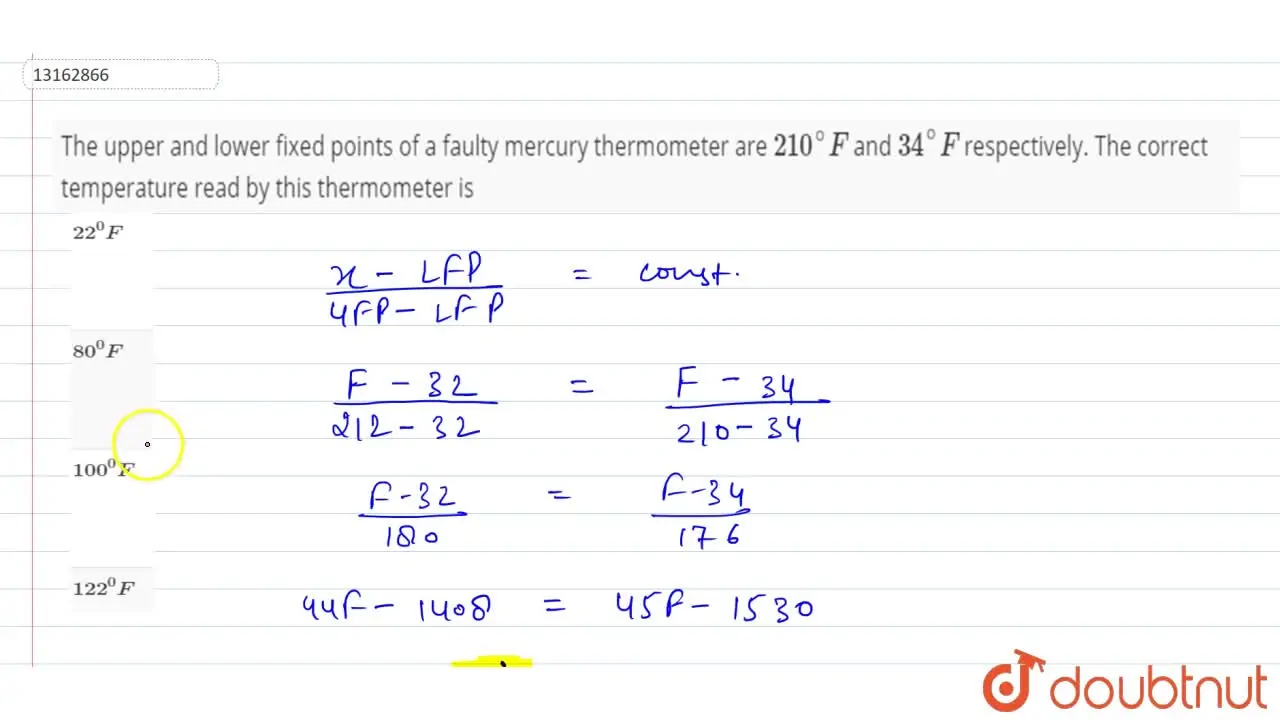 13162866
The upper and lower fixed points of a faulty mercury thermometer are 210°F and 34°F respectively. The correct
temperature read by this thermometer is
22⁰F
x - LFP / UFP - LFP = const.
80⁰F
F - 32 / 212 - 32 = F - 34 / 210 - 34
100⁰F
F - 32 / 180 = F - 34 / 176
122⁰F
44F - 1408 = 45F - 1530
doubtnut